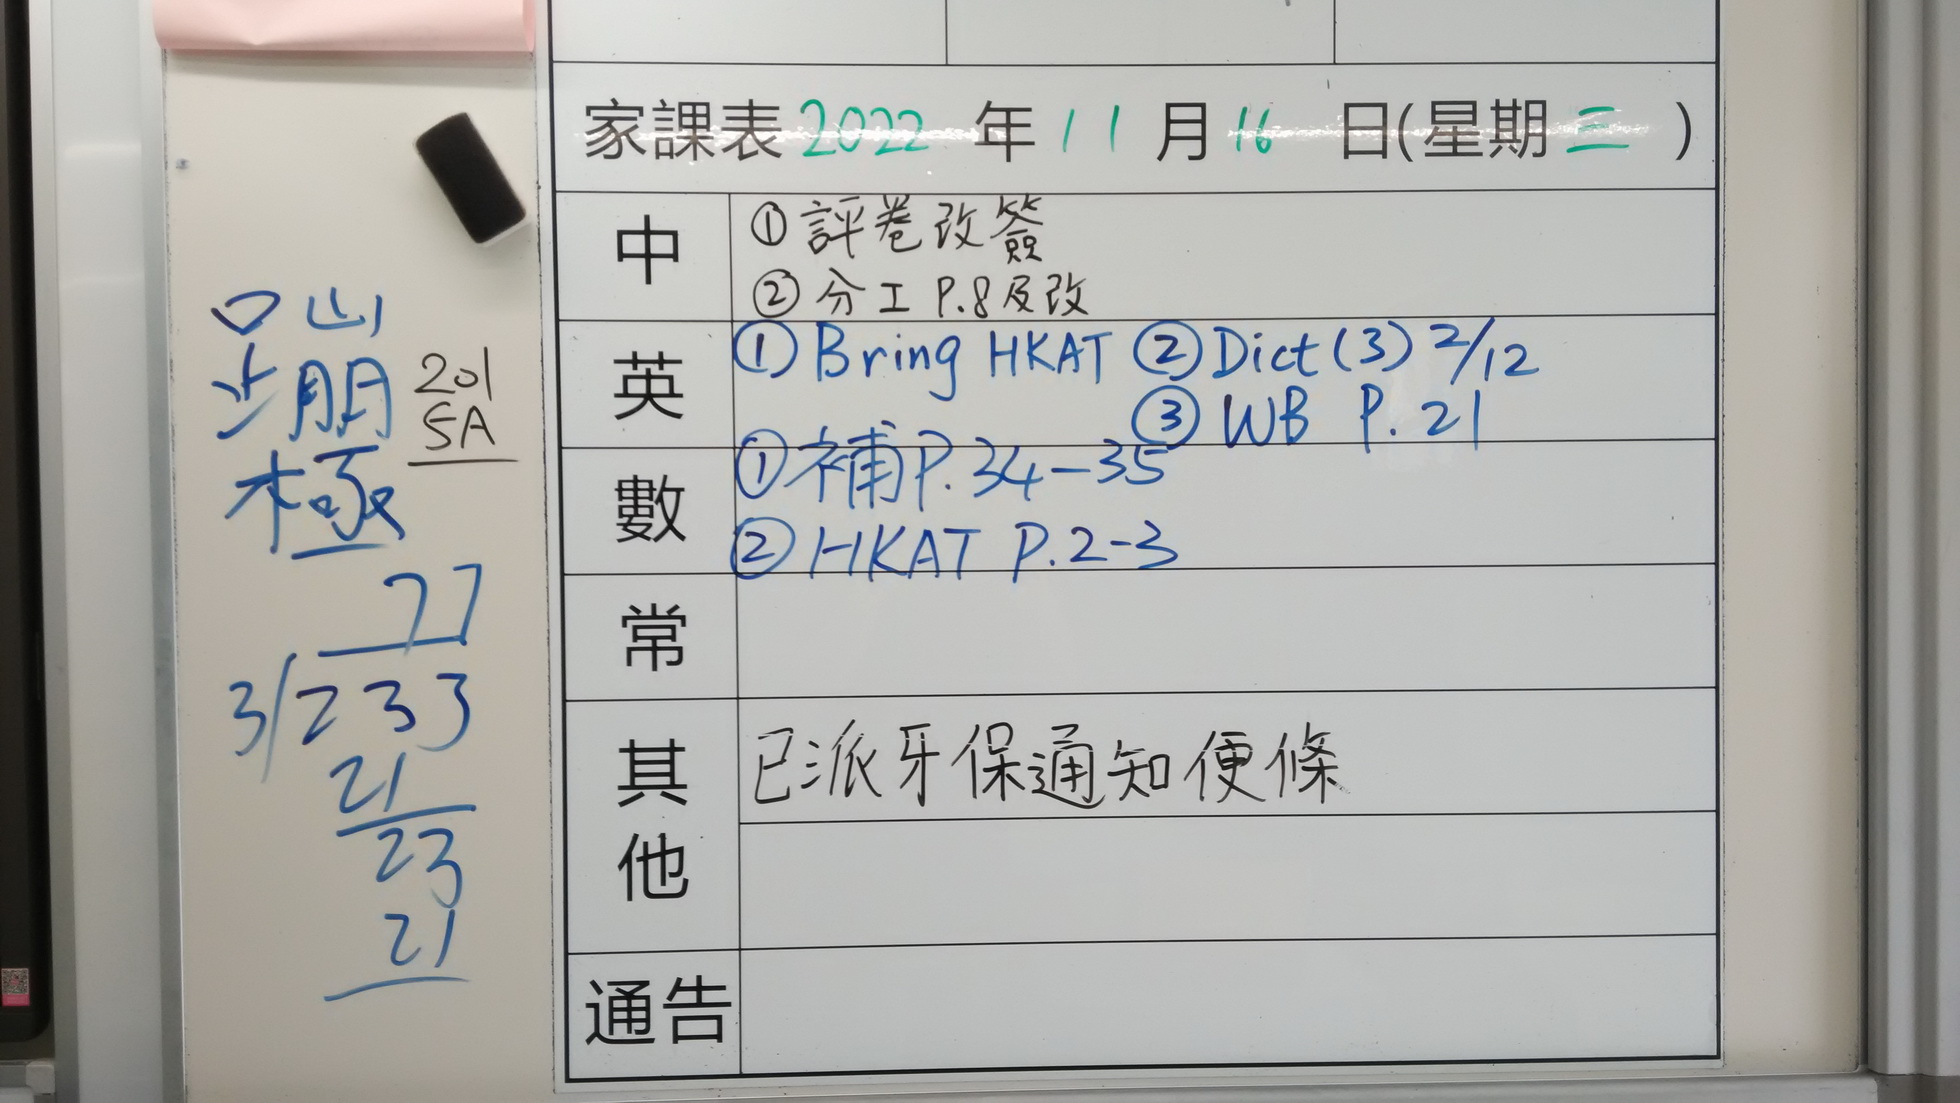 家課表 2022 年 11 月 16 日(星期 三 )
中
① 評卷改簽
② 分工 P.8及改
英
① Bring HKAT ② Dict (3) 2/12
③ WB P. 21
數
① 補 P. 34-35
② HKAT P. 2-3
常
其他
已派牙保通知便條
通告
口 山
朋
極
201
5A
77
3/233
21
23
21